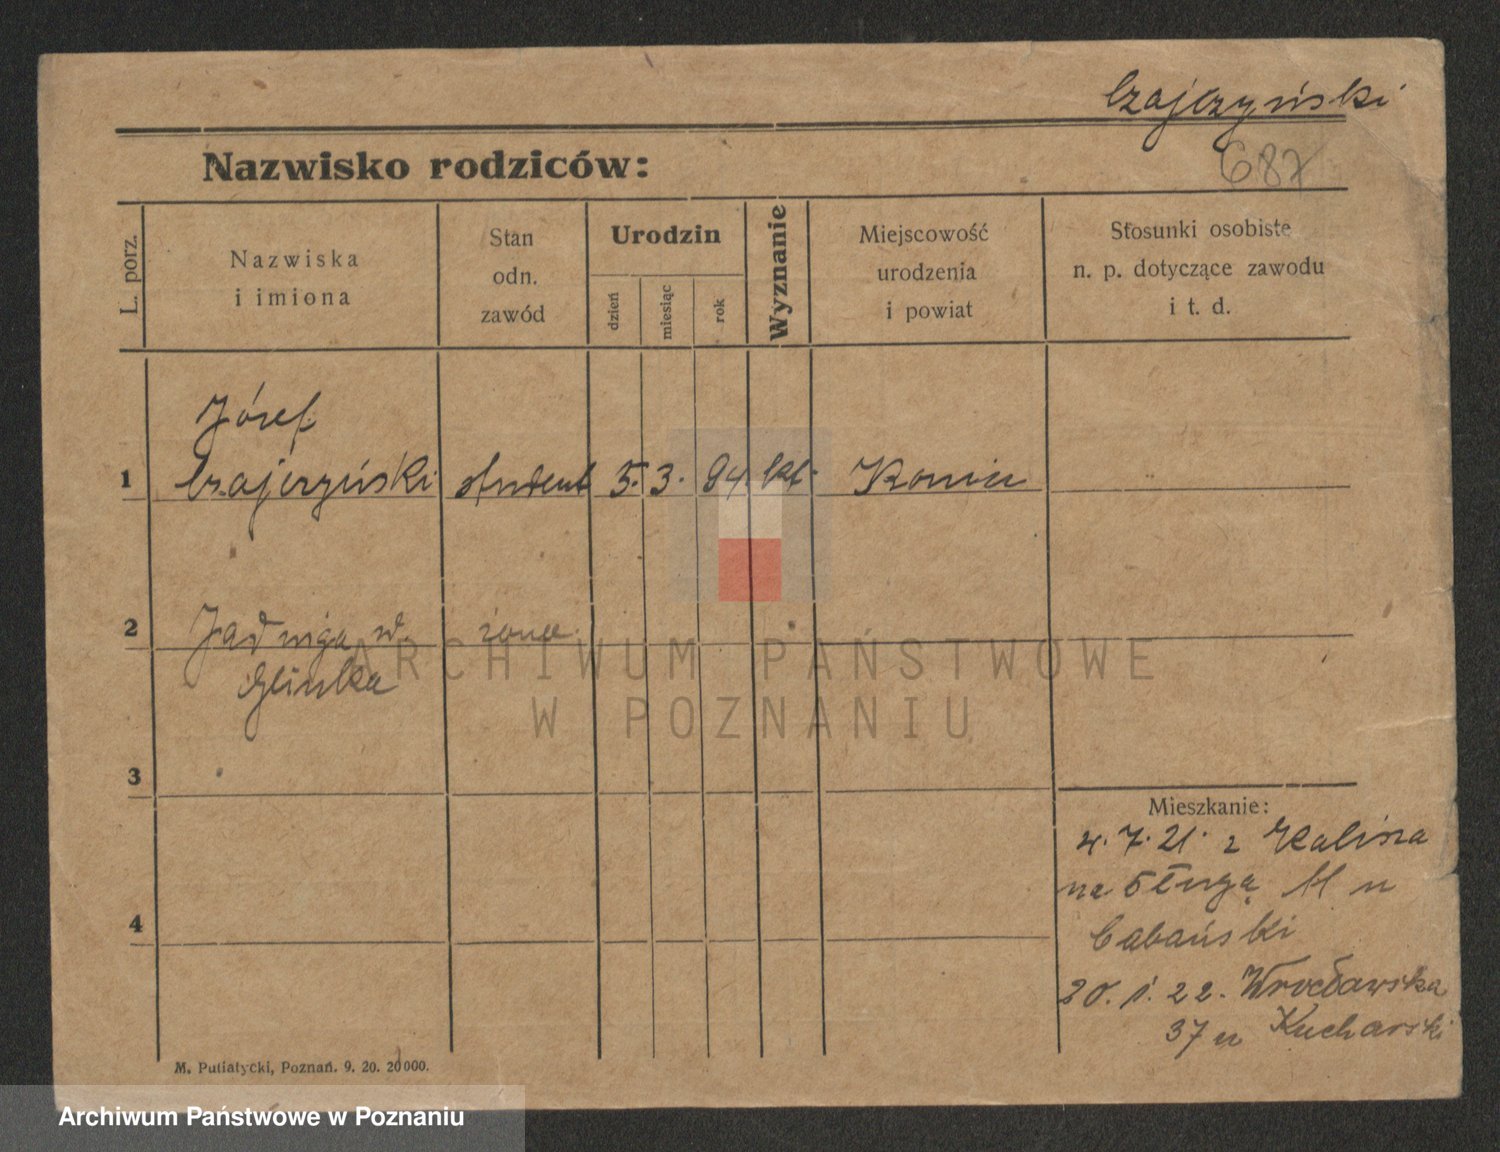 Czajczyński
687
Nazwisko rodziców:
L. porz.
Nazwiska
i imiona
Stan
odn.
zawód
Urodzin
dzień
miesiąc
rok
Wyznanie
Miejscowość
urodzenia
i powiat
Stosunki osobiste
n. p. dotyczące zawodu
i t. d.
Józef
1 Czajczyński student 5. 3. 94 kt. Konin
2 Jadwiga
Glinka
żona
3
Mieszkanie:
4. 7. 21. z Kalisza
na Długą 11 u
Cabański
20. 1. 22. Wrocławska
37 u Kucharski
4
M. Putiatycki, Poznań. 9. 20. 20000.
ARCHIWUM PAŃSTWOWE
W POZNANIU
Archiwum Państwowe w Poznaniu